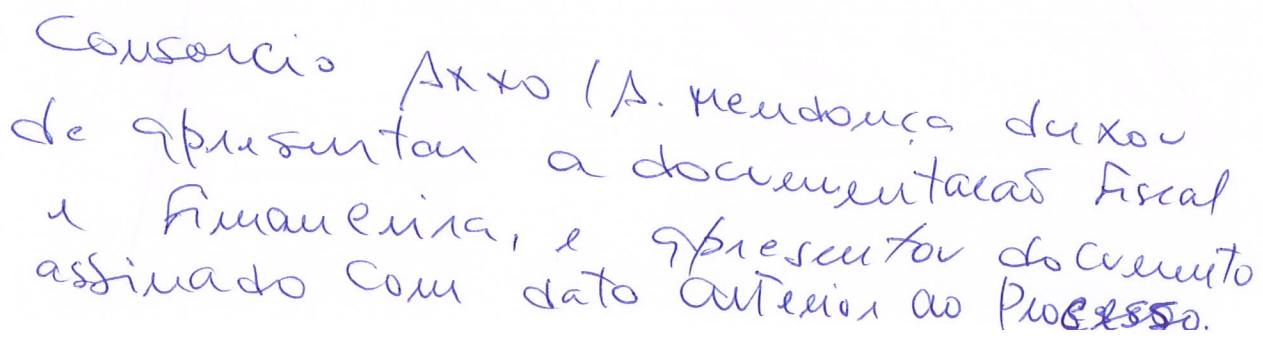 Consorcio Axxo / A. Mendonça deixou
de apresentar a documentacaõ Fiscal
e Financeira, e apresentou documento
assinado com data anterior ao Processo.